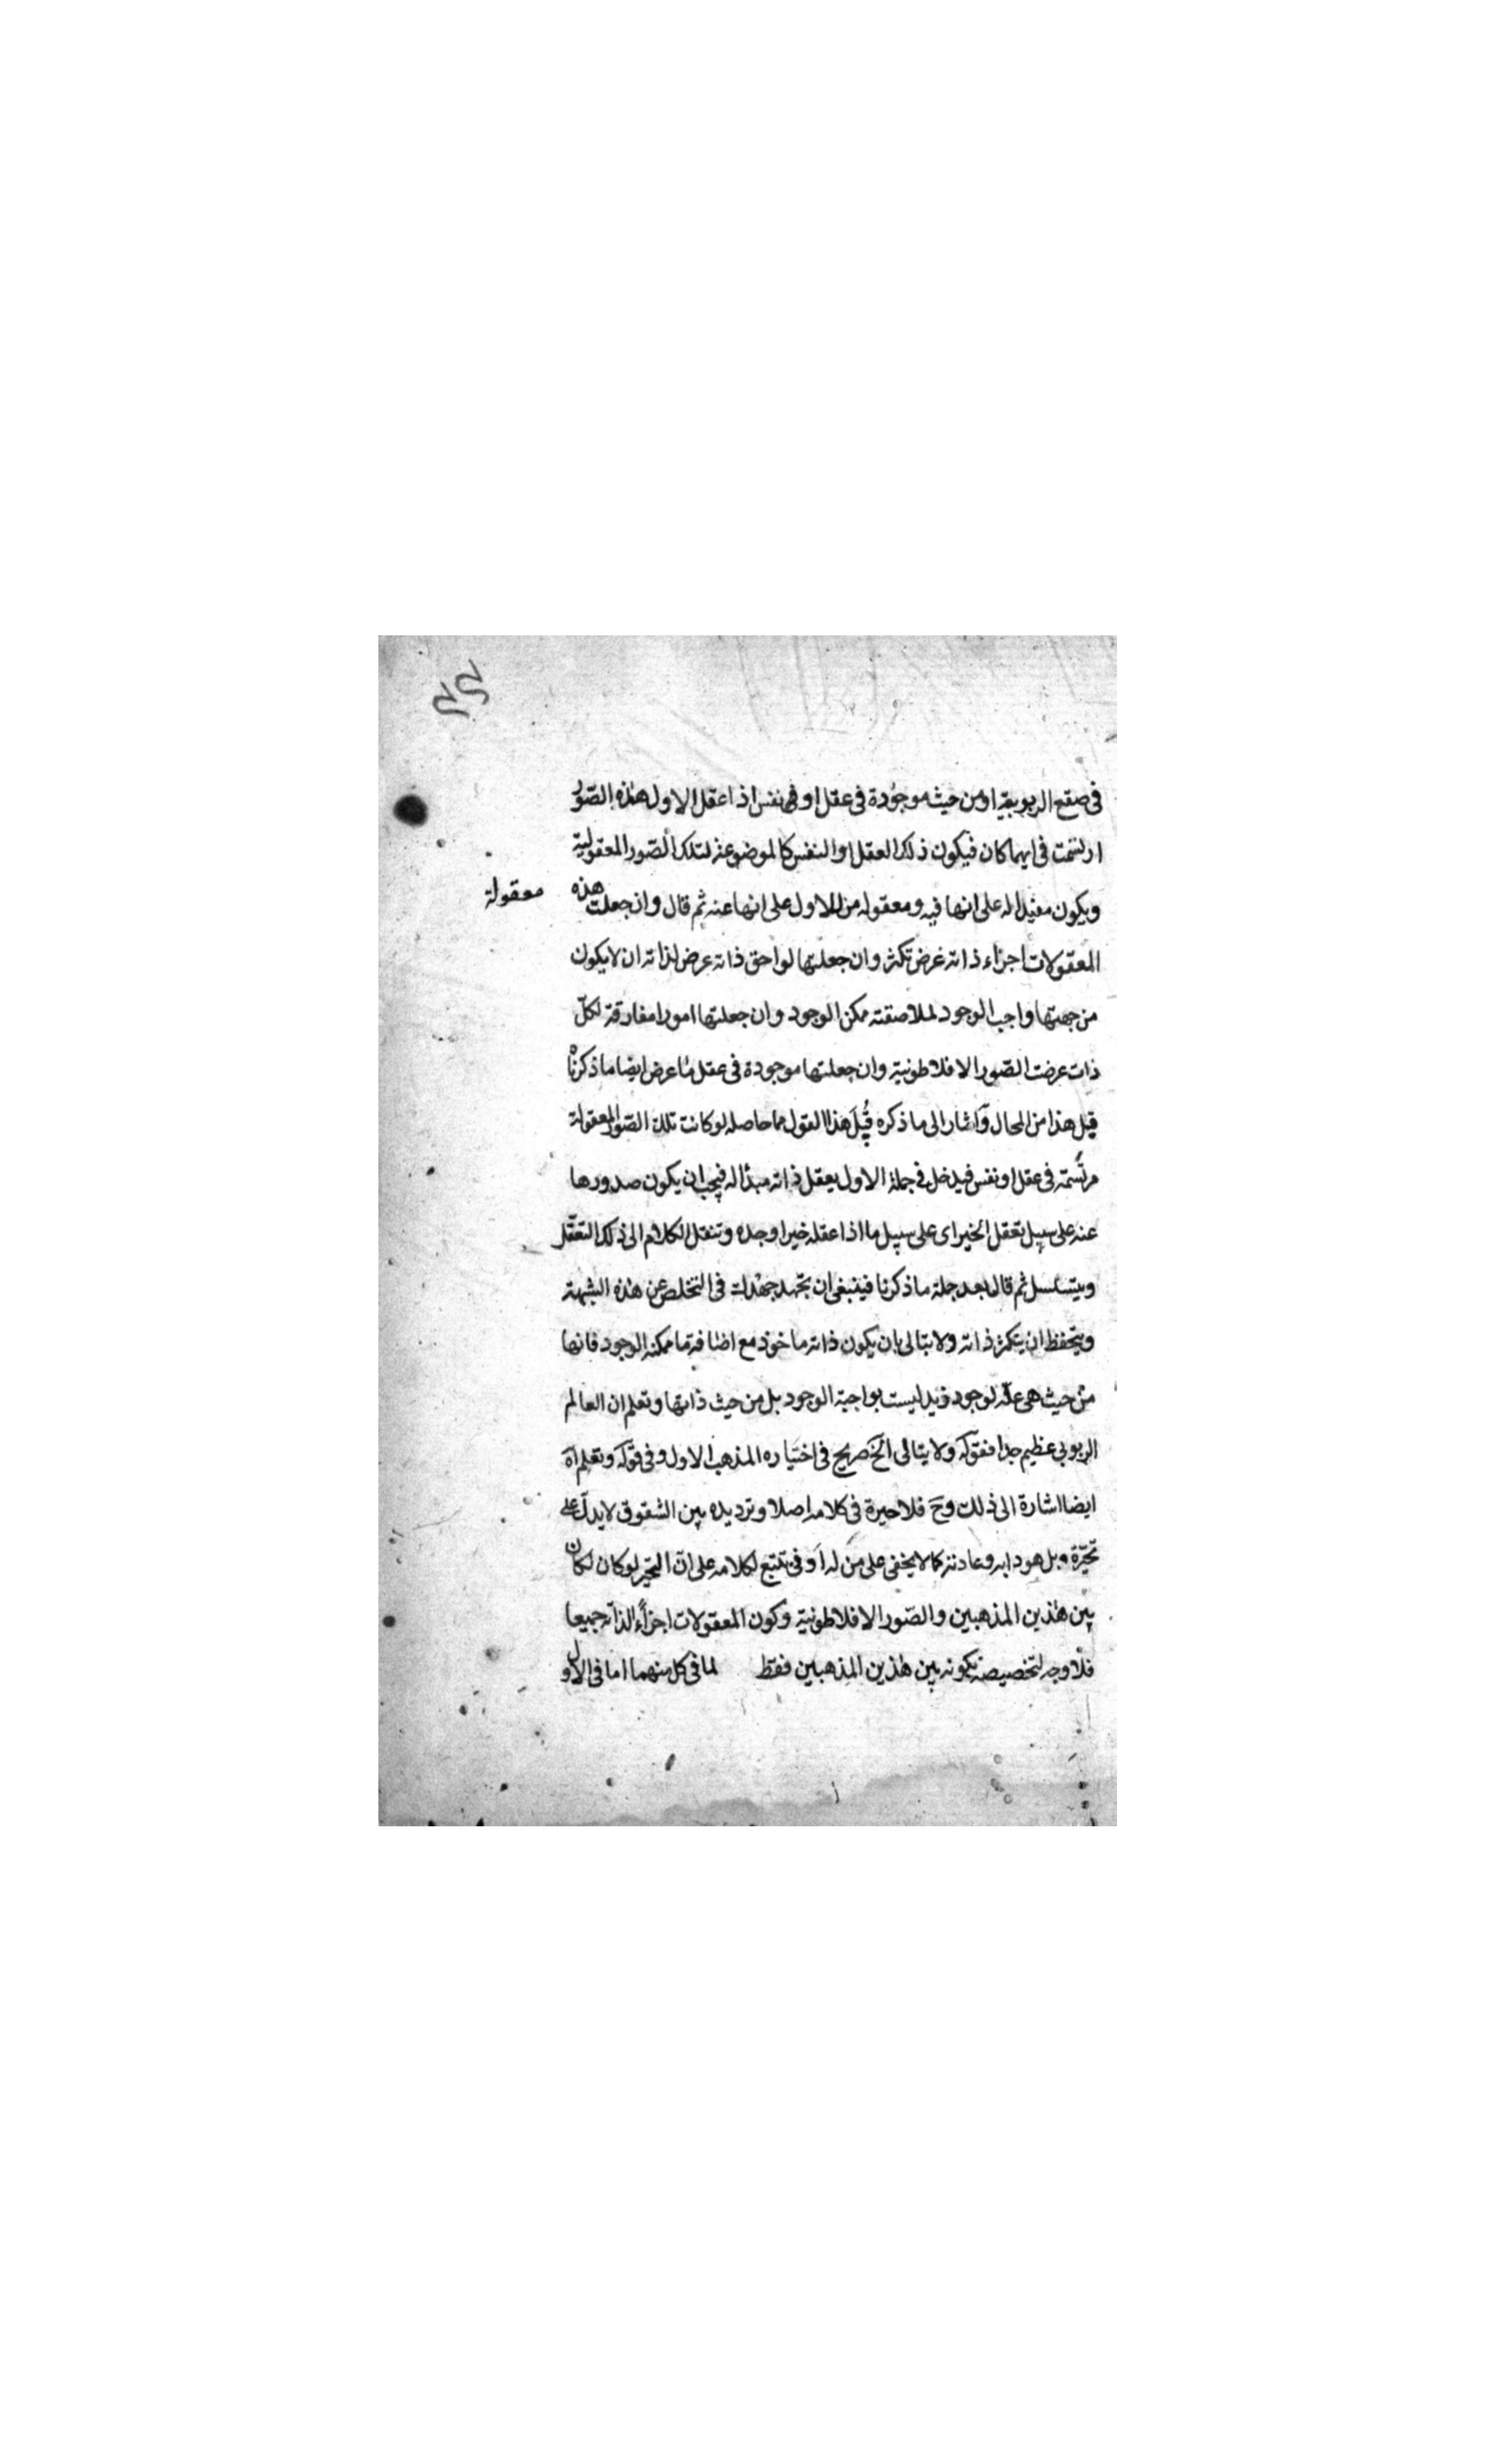 في صقع الربوبية او من حيث موجودة في عقل او في نفس اذا عقل الاول هذه الصور
ارتسمت في ايهما كان فيكون ذلك العقل او النفس كالموضوعة لتلك الصور المعقولية
ويكون معقولا له على انها فيه ومعقوله من الاول على انها عنه ثم قال وان جعلت هذه
معقولة
المعقولات اجزاء ذاته عرض تكثر وان جعلتها لواحق ذاته عرض لذاته ان لا يكون
من جهتها واجب الوجود لملاصقته ممكن الوجود وان جعلتها امورا مفارقة لكلّ
ذات عرضت الصور الافلاطونية وان جعلتها موجودة في عقل ما عرض ايضا ما ذكرنا
قبل هذا من المحال وآشار الى ما ذكره قُبَل هذا القول مما حاصله لو كانت تلك الصور المعقولة
مرتسمة في عقل او نفس فيدخل في جملة الاول يعقل ذاته مبدأ له فيجب ان يكون صدورها
عنه على سبيل تعقل الخير اى على سبيل ما اذا عقله خيرا وجده وتنقل الكلام الى ذلك التعقّل
ويتسلسل ثم قال بعد جملة ما ذكرنا فينبغى ان تجتهد جهدك في التخلص عن هذه الشبهة
ويتحفظ ان يتكثر ذاته ولا تبالى بان يكون ذاته ماخوذ مع اضافة ما ممكنه الوجود فانها
من حيث هي علّة لوجود زيد ليست بواجبة الوجود بل من حيث ذاتها وتعلم ان العالم
الربوبي عظيم جدا فقوله ولا يتالى الخ صريح في اختياره المذهب الاول وفي قوله وتعلم آه
ايضا اشارة الى ذلك وحَ فلا حيرة في كلامه اصلا وترديده بين الشقوق لا يدلّ على
تحيّره وبل هو دابه وعادته كما لا يخفى على من له اَوفى تتبع لكلامه على انّ التحير لو كان لكان
بين هذين المذهبين والصّور الافلاطونية وكون المعقولات اجزاءً لذاته جميعا
فلا وجه لتخصيصه بكونه بين هذين المذهبين فقط لما في كل منهما اما في الاول